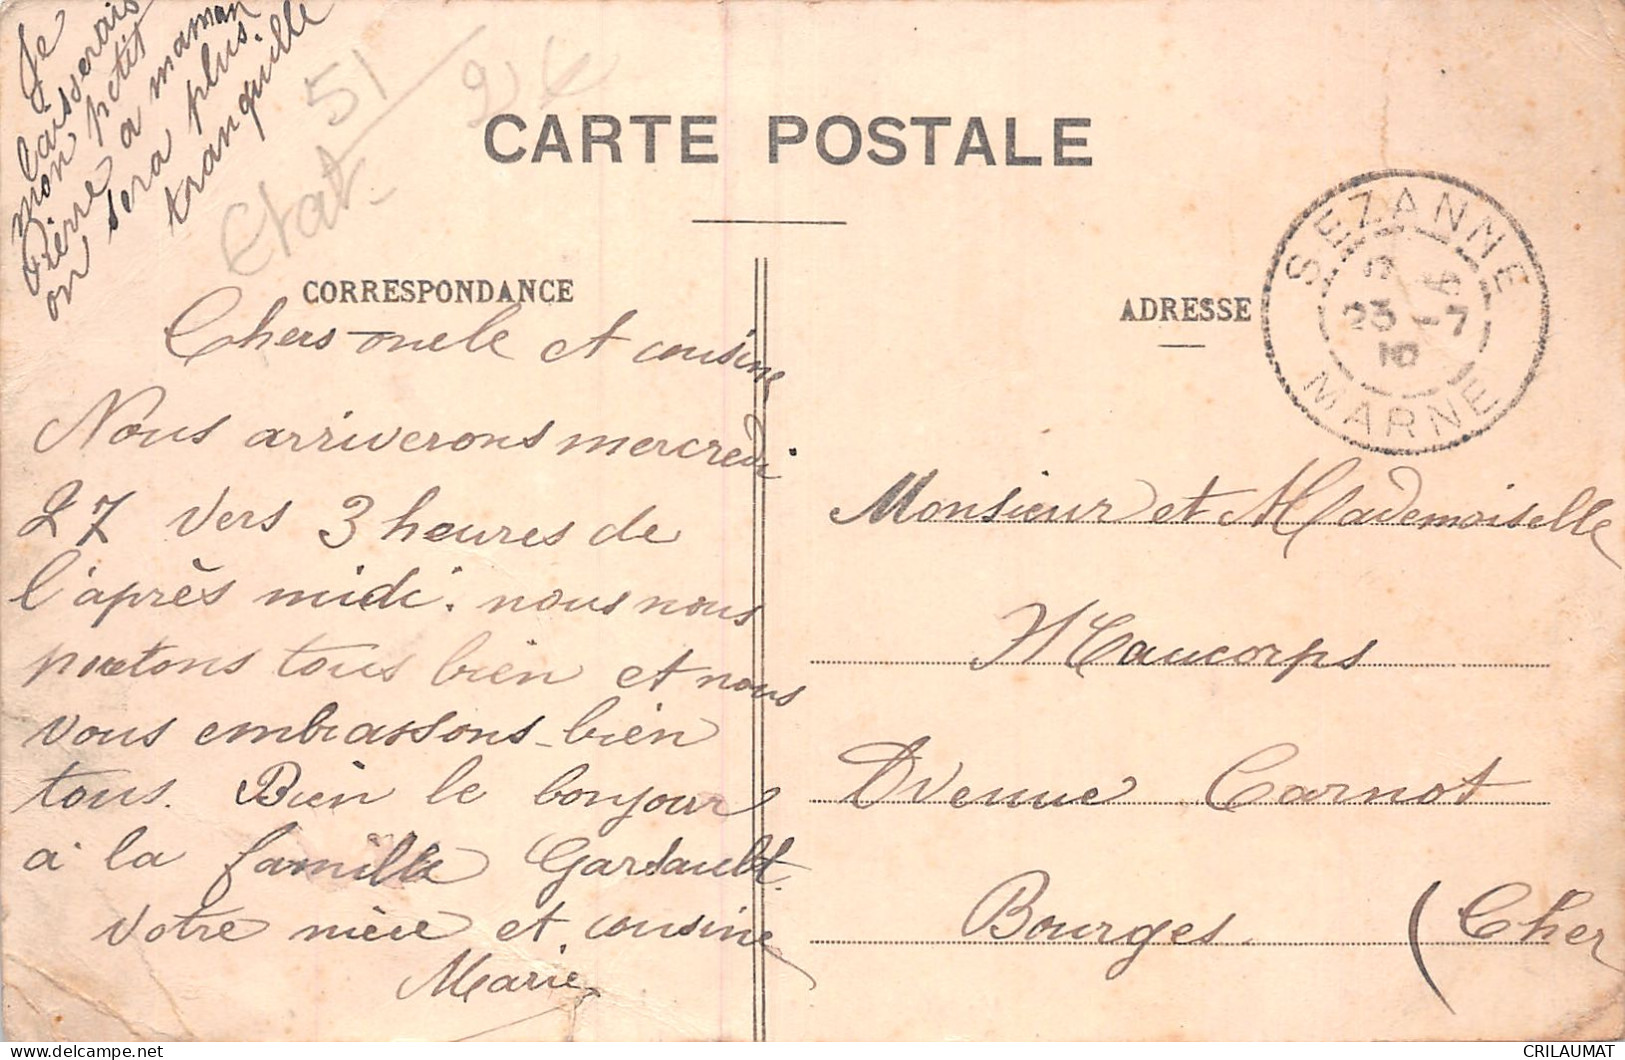 Je
laisserais
mon petit
Pierre a maman
on sera plus
tranquille
51
2€
Etat
CARTE POSTALE
CORRESPONDANCE
ADRESSE
SEZANNE
23 -7
10
MARNE
Chers oncle et cousine
Nous arriverons mercredi
27 vers 3 heures de
l'après midi. nous nous
portons tous bien et nous
vous embrassons bien
tous. Bien le bonjour
a la famille Garsault.
votre nièce et cousine
Marie
Monsieur et Mademoiselle
Maucorps
Avenue Carnot
Bourges. (Cher
CRILAUMAT